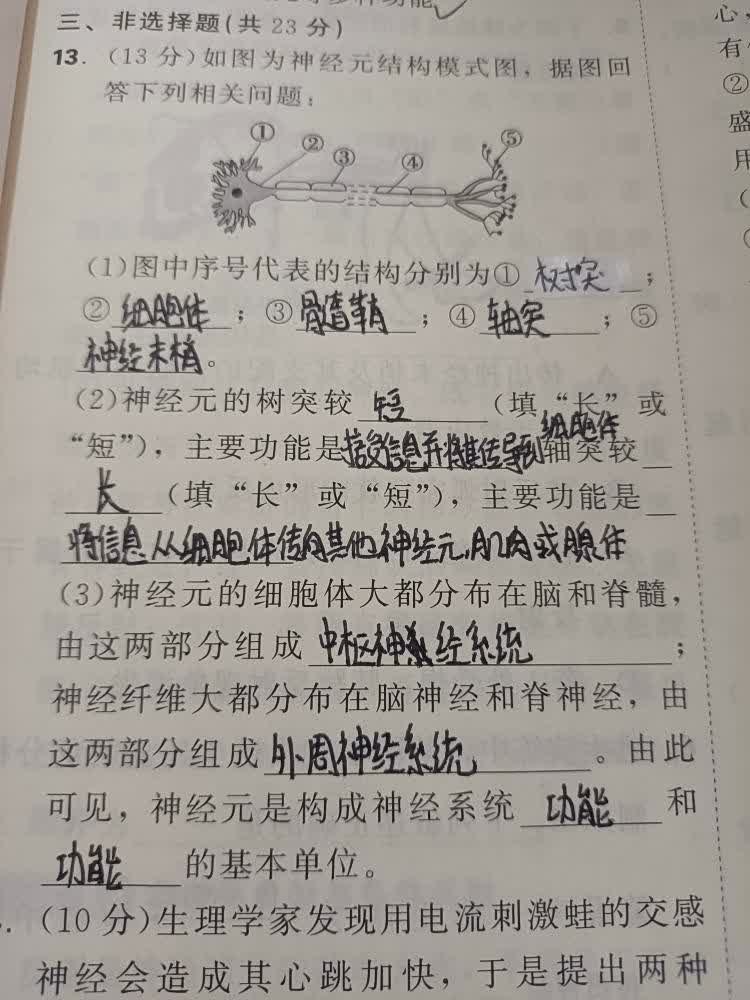 三、非选择题(共 23 分)
13. (13 分)如图为神经元结构模式图，据图回
答下列相关问题：
① ② ③ ④ ⑤
(1)图中序号代表的结构分别为① 树突 ；
② 细胞体 ；③ 髓鞘 ；④ 轴突 ；⑤
神经末梢 。
(2)神经元的树突较 短 (填“长”或
“短”)，主要功能是接受信息并将其传导到细胞体轴突较
长 (填“长”或“短”)，主要功能是
将信息从细胞体传向其他神经元,肌肉或腺体
(3)神经元的细胞体大都分布在脑和脊髓，
由这两部分组成 中枢神经系统 ；
神经纤维大都分布在脑神经和脊神经，由
这两部分组成 外周神经系统 。由此
可见，神经元是构成神经系统 功能 和
功能 的基本单位。
(10 分)生理学家发现用电流刺激蛙的交感
神经会造成其心跳加快，于是提出两种
心，
有
②
盛
用